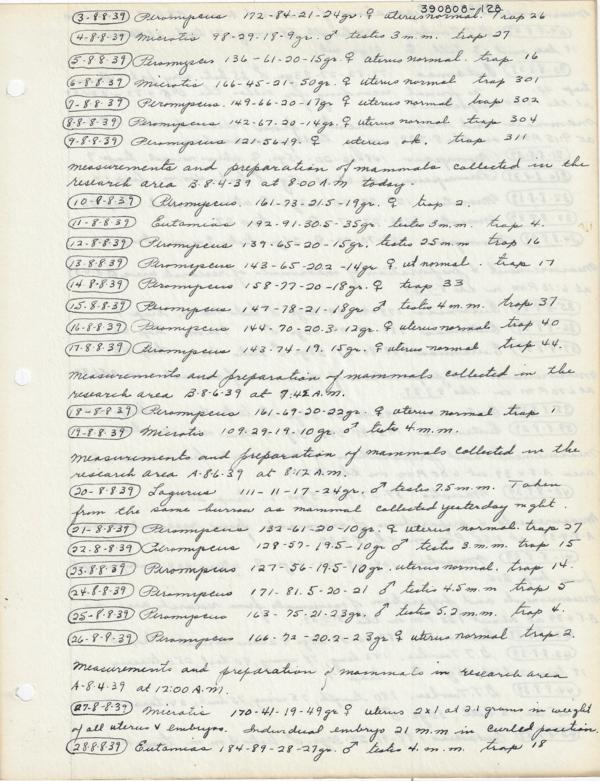 390808-128
3-8-8-39) Peromyscus 172-84-21-24gr. ♀ uterus normal. Trap 26
4-8-8-39) Microtis 98-29-18-9gr. ♂ testes 3 m.m. trap 27
5-8-8-39) Peromyscus 136-61-20-15gr. ♀ uterus normal. trap 16
6-8-8-39) Microtis 166-45-21-50gr. ♀ uterus normal trap 301
7-8-8-39) Peromyscus. 149-66-20-17gr ♀ uterus normal trap 302
8-8-8-39) Peromyscus 142-67-20-14gr. ♀ uterus normal trap 304
9-8-8-39) Peromyscus 121-56-19. ♀ uterus ok. trap 311
measurements and preparation of mammals collected in the
research area B-8-4-39 at 8:00 A.M. today.
10-8-8-39) Peromyscus. 161-73-21.5-19gr. ♀ trap 2.
11-8-8-39) Eutamias 192-91-30.5-35gr. testes 3m.m. trap 4.
12-8-8-39) Peromyscus 139-65-20-15gr. testes 25 m.m trap 16
13-8-8-39) Peromyscus 143-65-20.2-14gr ♀ ut normal. trap 17
14-8-8-39) Peromyscus 158-77-20-18gr. ♀ trap 33
15-8-8-39) Peromyscus 147-78-21-18gr ♂ testes 4 m.m. trap 37
16-8-8-39) Peromyscus 144-70-20.3-12gr. ♀ uterus normal trap 40
17-8-8-39) Peromyscus 143-74-19. 15gr. ♀ uterus normal trap 44.
measurements and preparation of mammals collected in the
research area B-8-6-39 at 7:42 A.M.
18-8-8-39) Peromyscus 161-69-20-22gr. ♀ uterus normal trap 1
19-8-8-39) Microtis 109-29-19-10gr. ♂ testes 4 m.m.
Measurements and preparation of mammals collected in the
research area A-8-6-39 at 8:12 A.M.
20-8-8-39) Lagurus 111-11-17-24gr. ♂ testes 7.5 m.m. Taken
from the same burrow as mammal collected yesterday night.
21-8-8-39) Peromyscus 132-61-20-10gr. ♀ uterus normal. trap 27
22-8-8-39) Peromyscus 128-57-19.5-10gr ♂ testes 3 m.m. trap 15
23-8-8-39) Peromyscus 127-56-19.5-10gr. uterus normal. trap 14.
24-8-8-39) Peromyscus 171-81.5-20-21 ♂ testes 4.5 m.m trap 5
25-8-8-39) Peromyscus 163-75-21-23gr. ♂ testes 5.2 m.m. trap 4.
26-8-8-39) Peromyscus 166-72-20.2-23gr ♀ uterus normal trap 2.
measurements and preparation of mammals in research area
A-8-4-39 at 12:00 A.M.
27-8-8-39) Microtis 170-41-19-49gr ♀ uterus 2x1 at 2.1 grams in weight
of all uterus & embryos. Individual embryo 21 m.m in curled position.
28-8-8-39) Eutamias 184-89-28-27gr. ♂ testes 4. m.m. trap 18